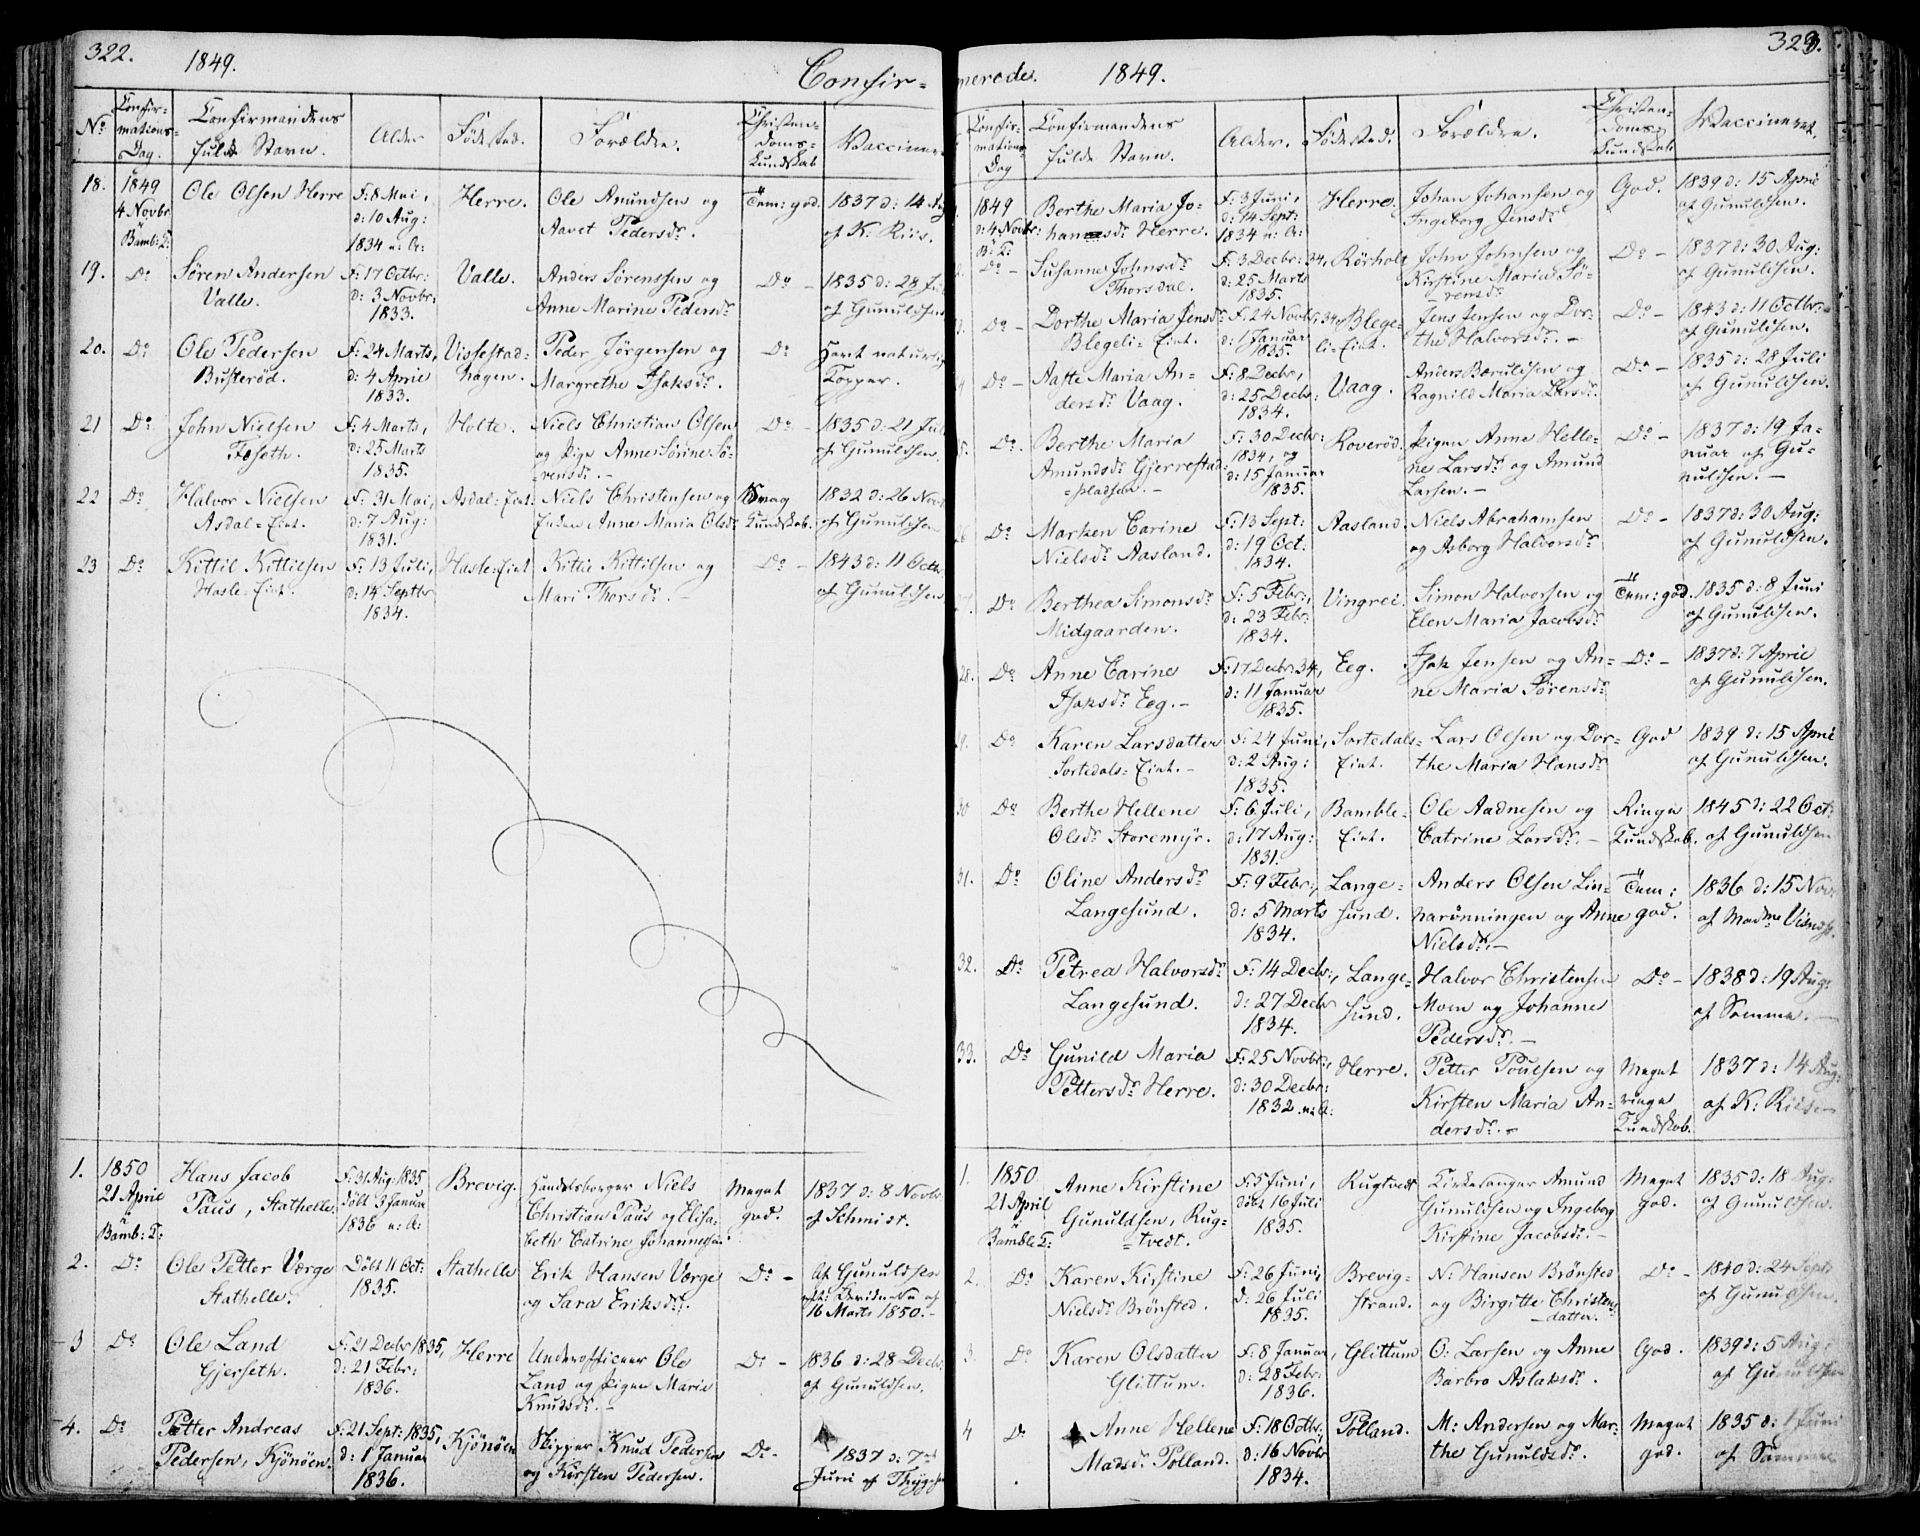 322.
1849.
Confir-
No
Confir-
mations-
Dag.
Confirmandens
fulde Navn.
Alder
Födested.
Forældre.
Christen-
doms-
kundskab
Vaccineret
18.
1849
4 Novbr
Bamb: K:
Ole Olsen Herre
F: 8 Mai,
d: 10 Aug:
1834 n: A:
Herre.
Ole Amundsen og
Aavet Pedersdr.
Tem: god.
1837 d: 14 Aug
af K. Riis.
19.
Do
Sören Andersen
Valle.
F: 17 Octbr:
d: 3 Novbr:
1833.
Valle.
Anders Sörenssen og
Anne Marine Pedersdr
Do -
1835 d: 28 Jul
af Gunuldsen
20.
Do
Ole Pedersen
Busteröd.
F: 24 Marts,
d: 4 April
1833.
Vissestad-
hagen.
Peder Jörgensen og
Margrethe Isaksdr.
Do
Havt naturlig
Kopper.
21
Do
John Nielsen
Foseth.
F: 4 Marts,
d: 25 Marts
1835.
Holte.
Niels Christian Olsen
og Pige Anne Sörine Sö-
rensdr. -
Do -
1835 d: 21 Jul
af Gunuldsen.
22
Do
Halvor Nielsen
Asdal-Eiet.
F: 31 Mai,
d: 7 Aug:
1831.
Asdal-Eiet.
Niels Christensen og
Anne Maria Olsdr
Svag
Kundskab.
1832 d: 26 Nov
af Gunuldsen
23
Do
Kittil Kittilsen
Hasle-Eiet.
F: 13 Juli,
d: 14 Septbr
1834.
Hasle-Eiet
Kittil Kittilsen og
Mari Thorsdr. -
Do -
1843 d: 11 Octbr
af Gunuldsen
1.
1850
21 April
Bamb: K:
Hans Jacob
Paus, Stathelle.
F: 31 Aug: 1835
döbt 3 Januar
1836 n: A:
Brevig.
Handelsborger Niels
Christian Paus og Elisa-
beth Catrine Johannesen.
Meget
god.
1837 d: 8 Novbr
af Schmidt.
2.
Do
Ole Petter Værge
Stathelle.
Döbt 11 Oct:
1835.
Stathelle
Erik Hansen Værge
og Sara Eriksdr.
Do -
Af Gunuldsen
16 Marts 1850. -
3
Do
Ole Land
Gjerseth.
F: 21 Decbr 1835,
d: 21 Febr:
1836.
Herre
Underofficeer Ole
Land og Pigen Maria
Knudsdr. -
Do -
1836 d: 28 Decbr
af Gunuldsen.
4.
Do
Petter Andreas
Pedersen, Kjönöen.
F: 21 Sept: 1835,
d: 1 Januar
1836.
Kjönöen
Skipper Knud Pedersen
og Kirsten Pedersen.
Do -
1837 d: 7de
Juni af Thygesen
323.
merede.
1849.
Confir-
mations
Dag
Confirmandens
fulde Navn.
Alder.
Födested.
Forældre.
Christen-
doms-
Kundskab
Vaccineret.
1849
d: 4 Novbr:
B: K:
Berthe Maria Jo-
hannesdr Herre.
F: 3 Juni,
d: 14 Sept:
1834 n: A:
Herre.
Johan Johansen og
Ingeborg Jensdr
God.
1839 d: 15 April
af Gunuldsen.
Do -
Susanne Johnsdr
Thorsdal.
F: 3 Decbr: 34,
d: 25 Marts
1835.
Rörholt
John Johnsen og
Kirstine Maria Sö-
rensdr
Do -
1837 d: 30 Aug:
af Gunuldsen.
Do -
Dorthe Maria Jensdr
Blegeli-Eiet.
F: 24 Novbr: 34,
d: 1 Januar
1835.
Blege-
li-Eiet.
Jens Jensen og Dor-
the Halvorsdr. -
Do -
1843 d: 11 Octbr:
af Gunuldsen.
Do -
Aaste Maria An-
dersdr Vaag.
F: 8 Decbr,
d: 25 Decbr:
1834.
Vaag.
Anders Bærulfsen og
Ragnild Maria Larsdr.
Do -
1835 d: 28 Juli
af Gunuldsen.
Do.
Berthe Maria
Amundsdr Gjerrestad-
pladsen. -
F: 30 Decbr:
1834, og
d: 15 Januar
1835.
Roveröd.
Pigen Anne Helle-
ne Larsdr og Amund
Larsen. -
Do -
1837 d: 19 Ja-
nuar af Gu-
nuldsen. -
26
Do
Marken Carine
Nielsdr Aasland.
F: 13 Sept:
d: 19 Oct:
1834.
Aasland.
Niels Abrahamsen
og Asborg Halvorsdr
Do -
1837 d: 30 Aug:
af Gunuldsen.
27.
Do
Berthea Simonsdr
Midgaarden.
F: 5 Febr:,
d: 23 Feb:
1834.
Vingrei.
Simon Halvorsen og
Elen Maria Jacobsdr
Tem: god.
1835 d: 8 Juni
af Gunuldsen.
28.
Do
Anne Carine
Isaksdr Eeg. -
F: 17 Decbr 34,
d: 11 Januar
1835.
Eeg.
Isak Jensen og An-
ne Maria Sörensdr
Do -
1837 d: 7 April
af Gunuldsen.
29.
Do
Karen Larsdatter
Sortedals-Eiet. -
F: 24 Juni,
d: 2 Aug:
1835.
Sortedals-
Eiet.
Lars Olsen og Dor-
the Maria Hansdr
God
1839 d: 15 April
af Gunuldsen.
30
Do
Berthe Hellene
Olsdr Storemyr.
F: 6 Juli,
d: 17 Aug:
1831.
Bamble-
Eiet.
Ole Aadnesen og
Catrine Larsdr. -
Ringe
Kundskab.
1845 d: 22 Oct:
af Gunuldsen
31.
Do
Oline Andersdr
Langesund.
F: 9 Febr:,
d: 5 Marts
1834.
Lange-
sund.
Anders Olsen Lin-
narönningen og Anne
Nielsdr. -
Tem:
god.
1836 d: 15 Nov:
af Madme
32.
Do
Petrea Halvorsdr
Langesund.
F: 14 Decbr:,
d: 27 Decbr
1834.
Lange-
sund.
Halvor Christensen
Moen og Johanne
Pedersdr. -
Do -
1838 d: 19 Aug:
af Somme. -
33.
Do
Gunild Maria
Pettersdr Herre.
F: 25 Novbr:,
d: 30 Decbr:
1832 n: A:
Herre.
Petter Poulsen og
Kirsten Maria An-
dersdr. -
Meget
ringe
Kundskab.
1837 d: 14 Aug:
af K: Riis -
1.
1850
21 April
Bamble K:
Anne Kirstine
Gunuldsen, Rug-
tvedt.
F: 5 Juni,
döbt 16 Juli
1835.
Rugtvedt
Kirkesanger Amund
Gunuldsen og Ingeborg
Kirstine Jacobsdr. -
Meget
god.
1835 d: 18 Aug:
af Gunuldsen.
2.
Do
Karen Kirstine
Nielsdr Brönsted.
F: 26 Juni,
d: 26 Juli
1835.
Brevig-
strand.
N: Hansen Brönsted
og Birgitte Christens-
datter.
Do -
1840 d: 24 Septb
af Gunuldsen.
3.
Do
Karen Olsdatter
Glittum.
F: 8 Januar,
d: 28 Febr:
1836.
Glittum
O: Larsen og Anne
Barbro Aslaksdr.
God.
1839 d: 5 Aug:
af Gunuldsen
4
Do
Anne Hellene
Madsdr Polland.
F: 18 Octbr,
d: 16 Novbr
1834.
Polland.
M: Andersen og Mar-
the Gunuldsdr.
Meget
god.
1835 d: 1 Juni
af Sommer